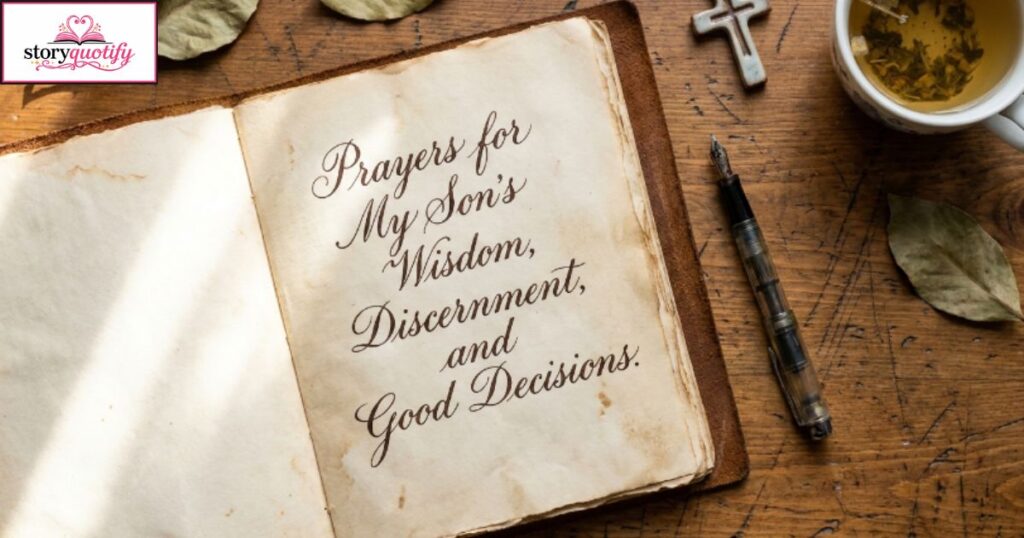 storyquotify
Prayers for
My Son's
Wisdom,
Discernment,
and
Good Decisions.